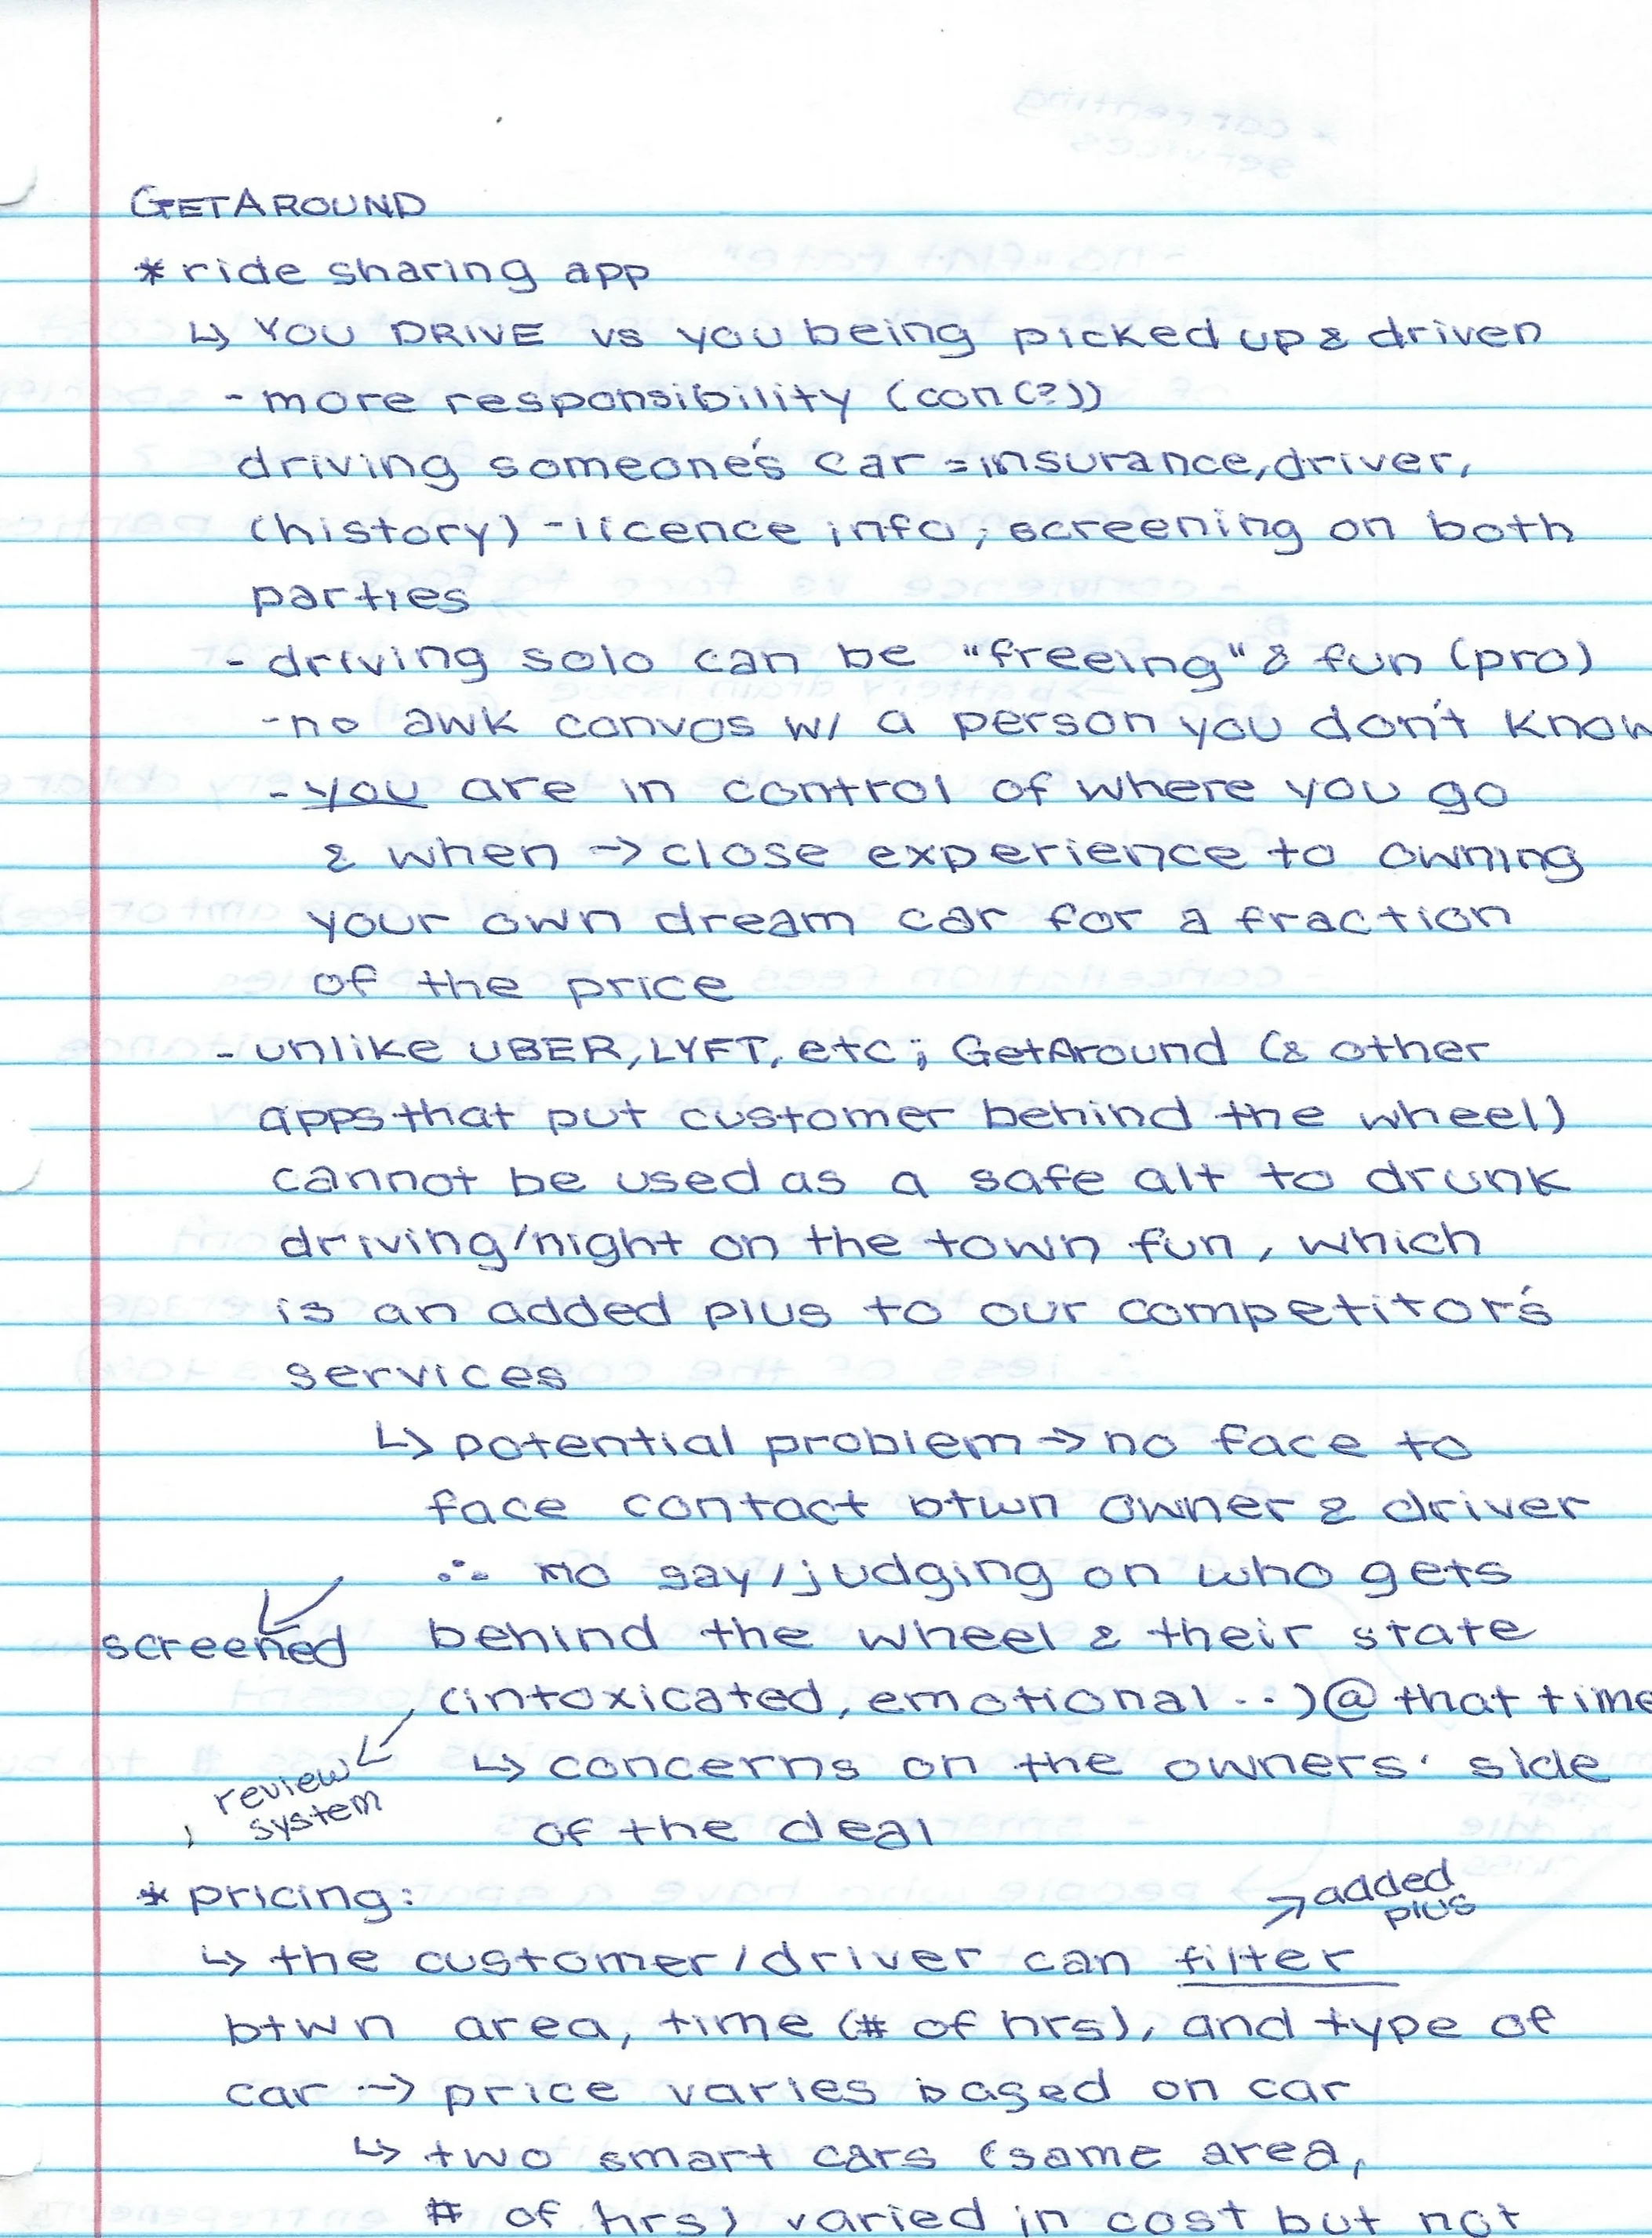 GETAROUND
* ride sharing app
↳ YOU DRIVE vs you being picked up & driven
- more responsibility (con(?))
driving someone's car = insurance, driver,
(history) - licence info; screening on both
parties
- driving solo can be "freeing" & fun (pro)
- no awk convos w/ a person you don't know
- you are in control of where you go
& when → close experience to owning
your own dream car for a fraction
of the price
- unlike UBER, LYFT, etc; GetAround (& other
apps that put customer behind the wheel)
cannot be used as a safe alt to drunk
driving/night on the town fun, which
is an added plus to our competitor's
services
↳ potential problem → no face to
face contact btwn owner & driver
∴ no say/judging on who gets
screened
behind the wheel & their state
(intoxicated, emotional ..) @ that time
review
system
↳ concerns on the owners' side
of the deal
* pricing:
added
plus
↳ the customer/driver can filter
btwn area, time (# of hrs), and type of
car → price varies based on car
↳ two smart cars (same area,
# of hrs) varied in cost but not